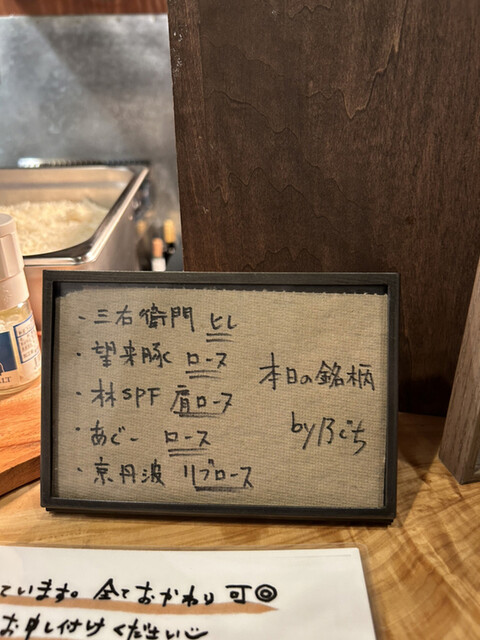 ・三右衛門 ヒレ
・望来豚 ロース
・林SPF 肩ロース
・あぐー ロース
・京丹波 リブロース
本日の銘柄
ています。全ておかわり可◎
お申し付けください